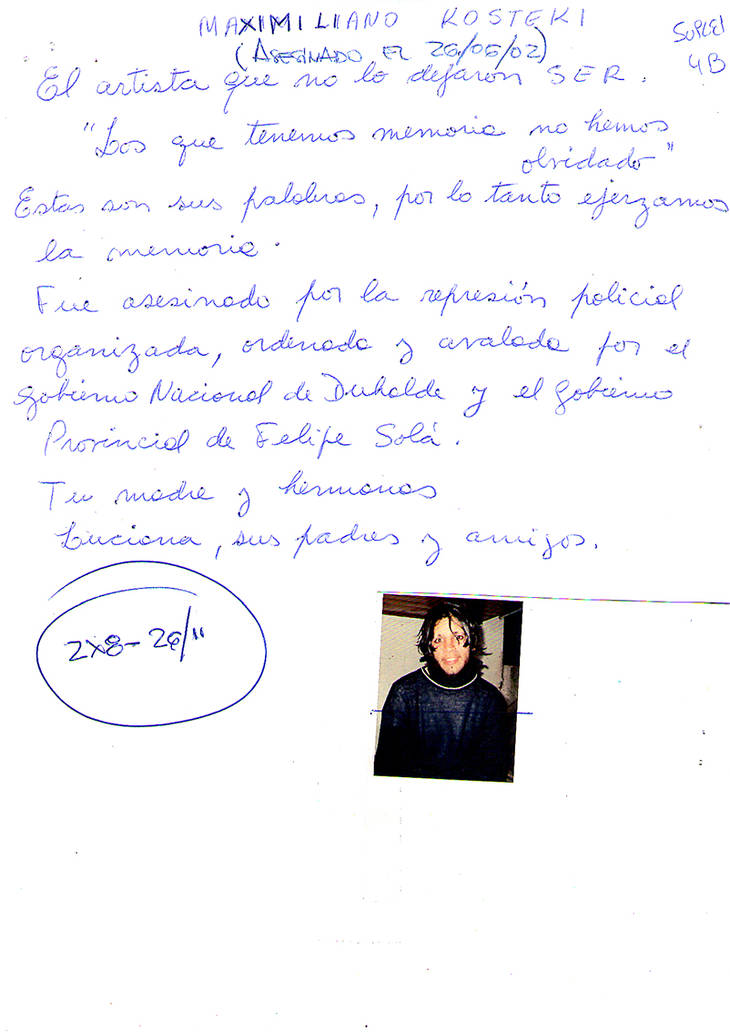 MAXIMILIANO KOSTEKI
(ASESINADO EL 26/06/02)
4B
El artista que no lo dejaron SER.
"Los que tenemos memoria no hemos
olvidado"
Estas son sus palabras, por lo tanto ejerzamos
la memoria.
Fue asesinado por la represión policial
organizada, ordenada y avalada por el
gobierno Nacional de Duhalde y el gobierno
Provincial de Felipe Solá.
Tu madre y hermanos
Luciana, sus padres y amigos.
2x8-26/11